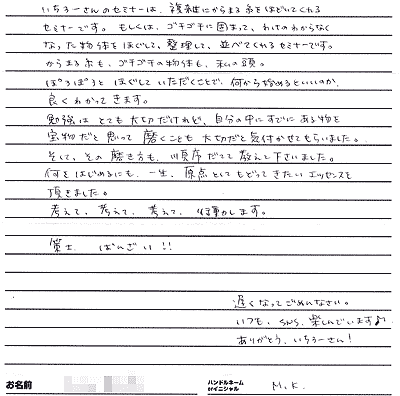 いちろーさんのセミナーは、複雑にからまる糸をほどいてくれる
セミナーです。もしくは、ゴチゴチに固まって、わけのわからなく
なった物体をほぐして、整理して、並べてくれるセミナーです。
からまる糸も、ゴチゴチの物体も、私の頭。
ぽろぽろと ほぐしていただくことで、何から始めるといいのか、
良くわかってきます。
勉強は とても大切だけれど、自分の中にすでにある物を
宝物だと思って 磨くことも 大切だと気付かせてもらいました。
そして、その磨き方も、順序だてて教えて下さいました。
何をはじめるにも、一生、原点としてもどってきたいエッセンスを
頂きました。
考えて、考えて、考えて、 します。
ばんざい!!
遅くなってごめんなさい。
いつも、SNS、楽しんでいます♪
ありがとう、いちろーさん!
お名前
ハンドルネーム
orイニシャル
M.K.